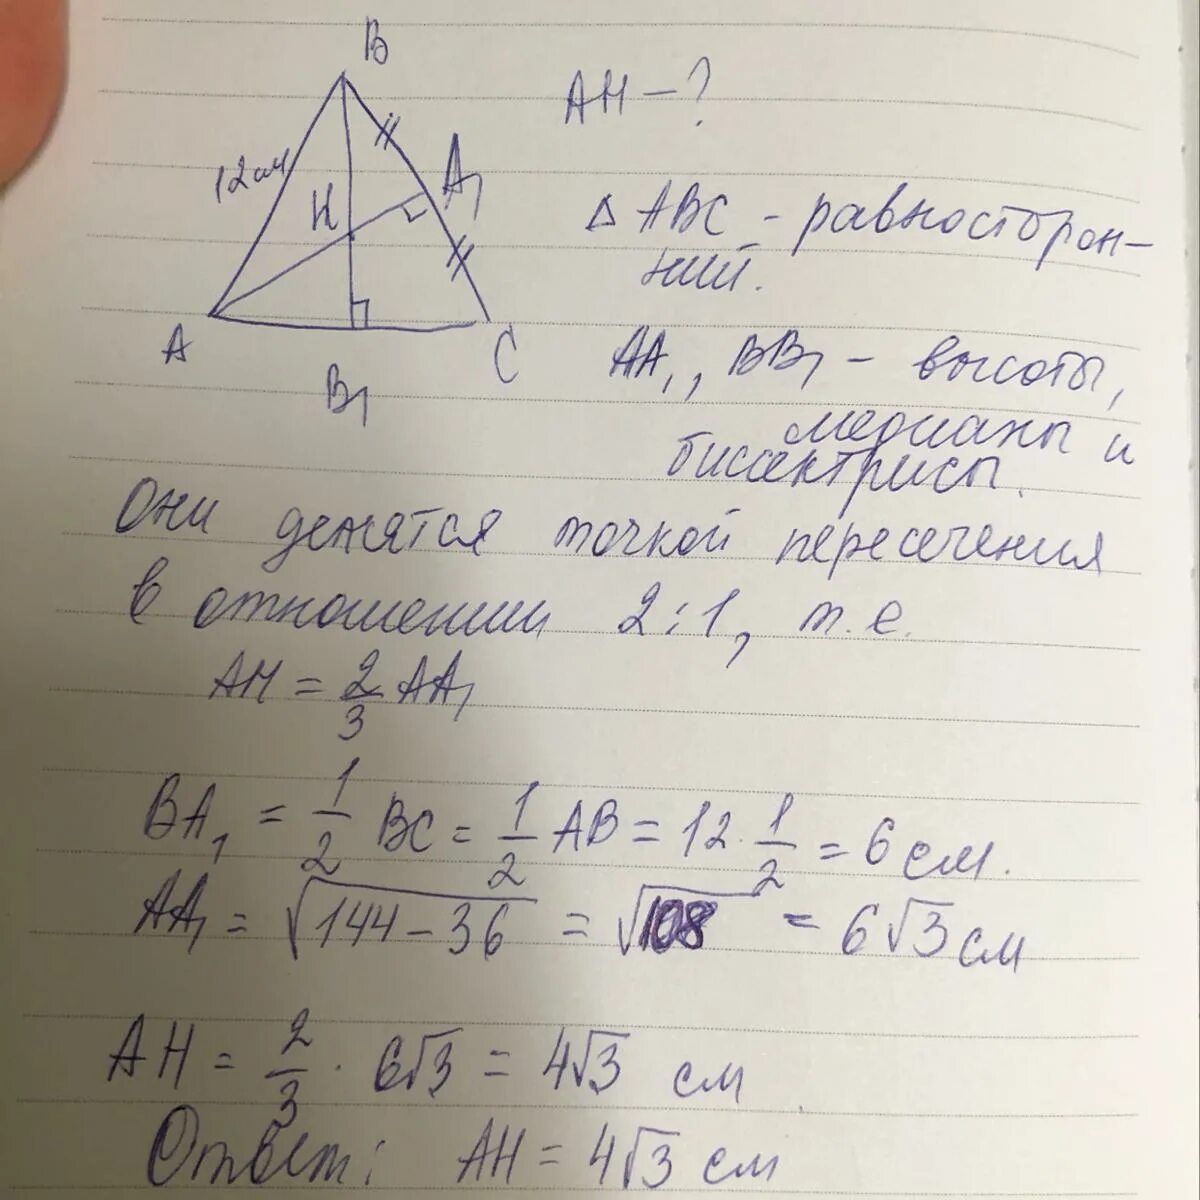 B
АН – ?
12 см
H
A₁
Δ ABC – равносторон-
ний.
A
B₁
C
AA₁, BB₁ – высоты,
медианы и
биссектрисы.
Они делятся точкой пересечения
в отношении 2:1, т.е.
AH = 2/3 AA₁
BA₁ = 1/2 BC = 1/2 AB = 12 · 1/2 = 6 см.
AA₁ = √144 – 36 = √108 = 6√3 см
AH = 2/3 · 6√3 = 4√3 см
Ответ: AH = 4√3 см